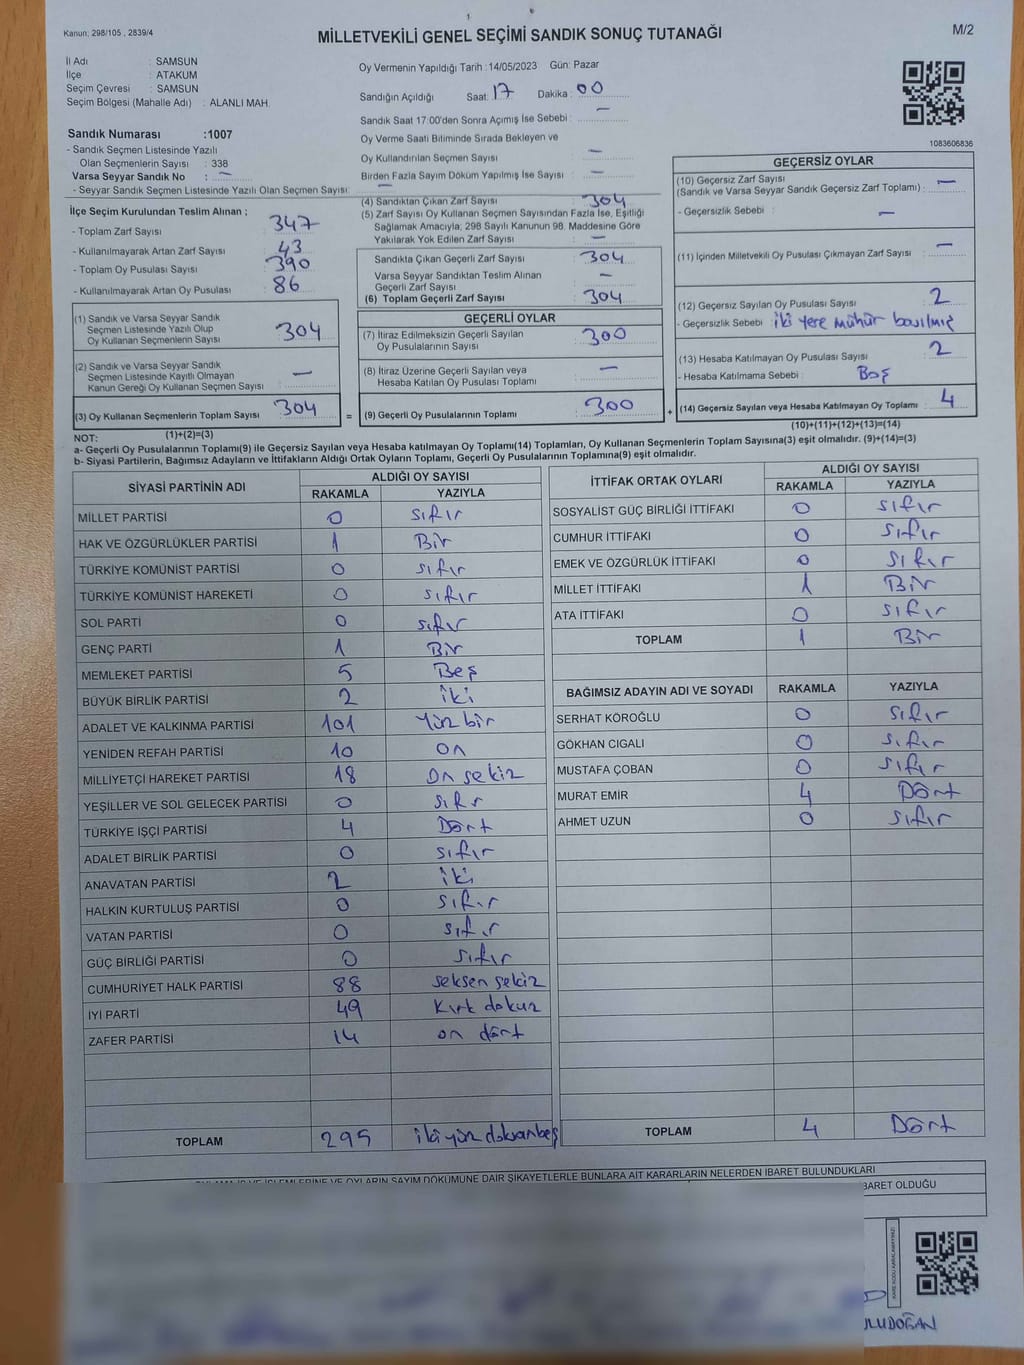 Kanun, 298/105 , 2839/4
MİLLETVEKİLİ GENEL SEÇİMİ SANDIK SONUÇ TUTANAĞI
M/2
İl Adı : SAMSUN
İlçe : ATAKUM
Seçim Çevresi : SAMSUN
Seçim Bölgesi (Mahalle Adı) : ALANLI MAH.
Oy Vermenin Yapıldığı Tarih :14/05/2023 Gün: Pazar
Sandığın Açıldığı Saat: 17 Dakika : 00
Sandık Saat 17:00'den Sonra Açımış İse Sebebi : —
Oy Verme Saati Bitiminde Sırada Bekleyen ve
Oy Kullandırılan Seçmen Sayısı : —
Birden Fazla Sayım Döküm Yapılmış İse Sayısı : —
Sandık Numarası :1007
- Sandık Seçmen Listesinde Yazılı
Olan Seçmenlerin Sayısı : 338
Varsa Seyyar Sandık No : —
- Seyyar Sandık Seçmen Listesinde Yazılı Olan Seçmen Sayısı: —
1083606836
İlçe Seçim Kurulundan Teslim Alınan ;
- Toplam Zarf Sayısı : 347
- Kullanılmayarak Artan Zarf Sayısı : 43
- Toplam Oy Pusulası Sayısı : 390
- Kullanılmayarak Artan Oy Pusulası : 86
(1) Sandık ve Varsa Seyyar Sandık
Seçmen Listesinde Yazılı Olup
Oy Kullanan Seçmenlerin Sayısı : 304
(2) Sandık ve Varsa Seyyar Sandık
Seçmen Listesinde Kayıtlı Olmayan
Kanun Gereği Oy Kullanan Seçmen Sayısı : —
(3) Oy Kullanan Seçmenlerin Toplam Sayısı : 304
(1)+(2)=(3)
(4) Sandıktan Çıkan Zarf Sayısı : 304
(5) Zarf Sayısı Oy Kullanan Seçmen Sayısından Fazla İse, Eşitliği
Sağlamak Amacıyla; 298 Sayılı Kanunun 98. Maddesine Göre
Yakılarak Yok Edilen Zarf Sayısı : —
Sandıkta Çıkan Geçerli Zarf Sayısı : 304
Varsa Seyyar Sandıktan Teslim Alınan
Geçerli Zarf Sayısı : —
(6) Toplam Geçerli Zarf Sayısı : 304
GEÇERLİ OYLAR
(7) İtiraz Edilmeksizin Geçerli Sayılan
Oy Pusulalarının Sayısı : 300
(8) İtiraz Üzerine Geçerli Sayılan veya
Hesaba Katılan Oy Pusulası Toplamı : —
= (9) Geçerli Oy Pusulalarının Toplamı : 300 +
GEÇERSİZ OYLAR
(10) Geçersiz Zarf Sayısı
(Sandık ve Varsa Seyyar Sandık Geçersiz Zarf Toplamı) : —
- Geçersizlik Sebebi : —
(11) İçinden Milletvekili Oy Pusulası Çıkmayan Zarf Sayısı : —
(12) Geçersiz Sayılan Oy Pusulası Sayısı : 2
- Geçersizlik Sebebi : iki yere mühür basılmış
(13) Hesaba Katılmayan Oy Pusulası Sayısı : 2
- Hesaba Katılmama Sebebi : Boş
(14) Geçersiz Sayılan veya Hesaba Katılmayan Oy Toplamı : 4
(10)+(11)+(12)+(13)=(14)
NOT:
a- Geçerli Oy Pusulalarının Toplamı(9) ile Geçersiz Sayılan veya Hesaba katılmayan Oy Toplamı(14) Toplamları, Oy Kullanan Seçmenlerin Toplam Sayısına(3) eşit olmalıdır. (9)+(14)=(3)
b- Siyasi Partilerin, Bağımsız Adayların ve İttifakların Aldığı Ortak Oyların Toplamı, Geçerli Oy Pusulalarının Toplamına(9) eşit olmalıdır.
SİYASİ PARTİNİN ADI ALDIĞI OY SAYISI
RAKAMLA YAZIYLA
MİLLET PARTİSİ 0 sıfır
HAK VE ÖZGÜRLÜKLER PARTİSİ 1 Bir
TÜRKİYE KOMÜNİST PARTİSİ 0 sıfır
TÜRKİYE KOMÜNİST HAREKETİ 0 sıfır
SOL PARTİ 0 sıfır
GENÇ PARTİ 1 Bir
MEMLEKET PARTİSİ 5 Beş
BÜYÜK BİRLİK PARTİSİ 2 iki
ADALET VE KALKINMA PARTİSİ 101 Yüz bir
YENİDEN REFAH PARTİSİ 10 on
MİLLİYETÇİ HAREKET PARTİSİ 18 On sekiz
YEŞİLLER VE SOL GELECEK PARTİSİ 0 sıfır
TÜRKİYE İŞÇİ PARTİSİ 4 Dört
ADALET BİRLİK PARTİSİ 0 sıfır
ANAVATAN PARTİSİ 2 iki
HALKIN KURTULUŞ PARTİSİ 0 sıfır
VATAN PARTİSİ 0 sıfır
GÜÇ BİRLİĞİ PARTİSİ 0 sıfır
CUMHURİYET HALK PARTİSİ 88 seksen sekiz
İYİ PARTİ 49 Kırk dokuz
ZAFER PARTİSİ 14 on dört
TOPLAM 295 ikiyüz doksanbeş
İTTİFAK ORTAK OYLARI ALDIĞI OY SAYISI
RAKAMLA YAZIYLA
SOSYALİST GÜÇ BİRLİĞİ İTTİFAKI 0 sıfır
CUMHUR İTTİFAKI 0 sıfır
EMEK VE ÖZGÜRLÜK İTTİFAKI 0 sıfır
MİLLET İTTİFAKI 1 Bir
ATA İTTİFAKI 0 sıfır
TOPLAM 1 Bir
BAĞIMSIZ ADAYIN ADI VE SOYADI RAKAMLA YAZIYLA
SERHAT KÖROĞLU 0 sıfır
GÖKHAN CIGALI 0 sıfır
MUSTAFA ÇOBAN 0 sıfır
MURAT EMİR 4 Dört
AHMET UZUN 0 sıfır
TOPLAM 4 Dört
VE OYLARIN SAYIM DÖKÜMÜNE DAİR ŞİKAYETLERLE BUNLARA AİT KARARLARIN NELERDEN İBARET BULUNDUKLARI
BARET OLDUĞU
ULUDOĞAN